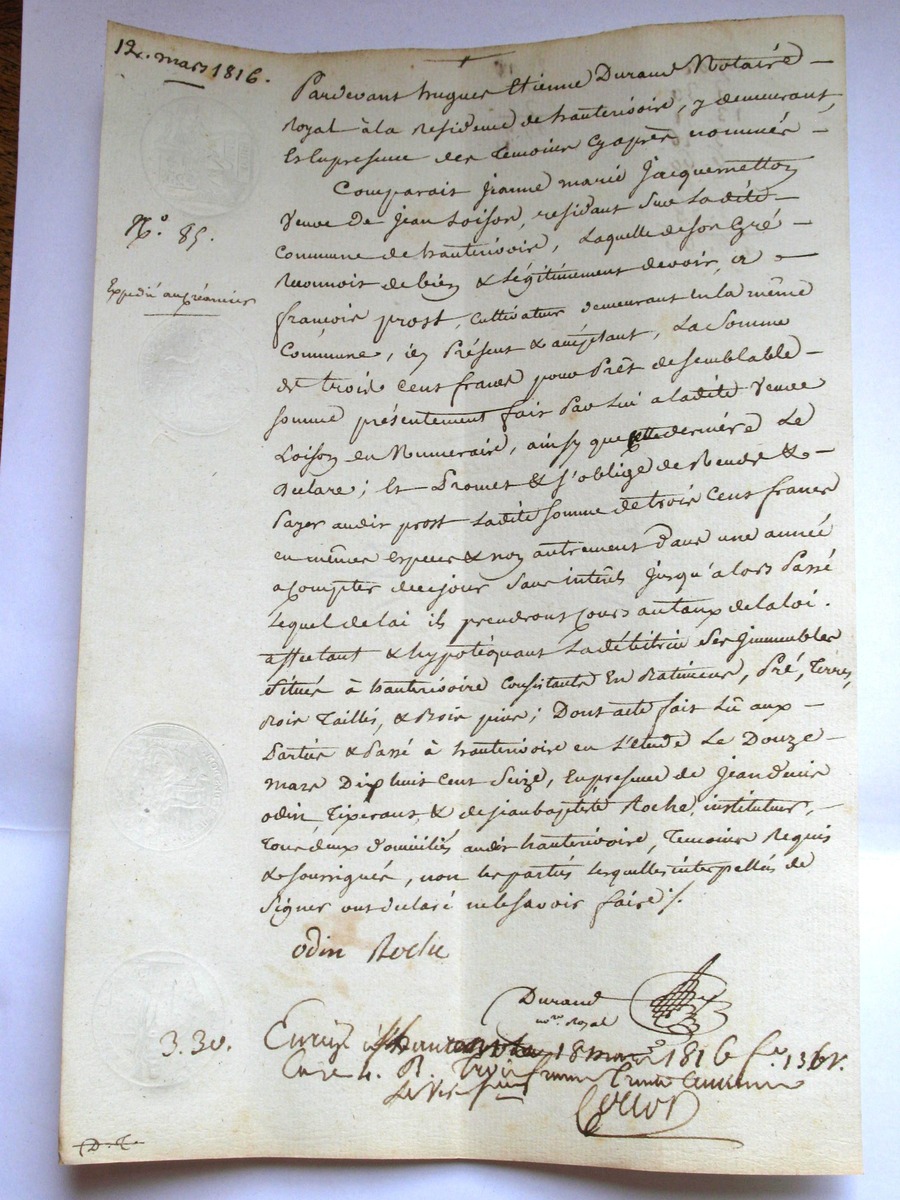 12. mars 1816.
Pardevant hugues Etienne Durand Notaire
Royal à la Residence de hauterivoire, y demeurant,
Et En presence des temoins Cy après nommés
Comparait Jeanne marie Jacquemetton
Veuve De Jean Loison, residant Sur Ladite
N.º 85.
Commune de hauterivoire, Laquelle de son Gré
Reconnoit de bien & Légitimement devoir, a
Expédié au créancier
françois prost, Cultivateur demeurant En la même
Commune, ici Présent & acceptant, La Somme
de trois Cent francs pour Prêt de semblable
somme présentement fait Par Lui a ladite Veuve
Loison en Numeraire, ainsy que cette derniere Le
declare; Et Promet & s'oblige de Rendre &
Payer audit prost Ladite Somme de trois Cent francs
en mêmes especes & non autrement Dans une année
a Compter de ce jour Sans intérêts Jusqu'alors Passé
Lequel delai ils prendront Cours au taux de la loi.
affectant & hypotéquant La débitrice Ses Immeubles
Situés à hauterivoire Consistants En Batiments, Pré, Terres,
Bois Taillis, & Bois pins; Dont acte fait Lû aux
Parties & Passé à hauterivoire en L'etude Le Douze
mars Dix huit Cent Seize, En presence de Jean denis
odin Tixerant & de jean baptiste Roche, instituteur,
Tous deux domiciliés audit hauterivoire, Temoins Requis
& soussignés, non les parties Lesquelles interpellées de
Signer ont declaré ne le savoir faire /.
odin Roche
Durand
no.re Royal
3.30.
Enreg. à 18 mars 1816 f.º 136 v.
Case 4. R. Trois francs trente Centimes
D. T.